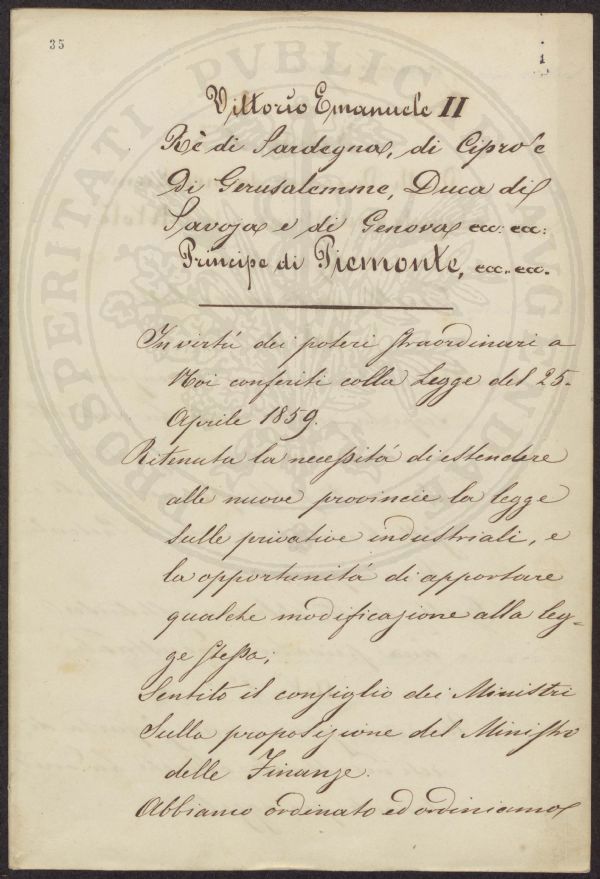 35
1
Vittorio Emanuele II
Rè di Sardegna, di Cipro e
Di Gerusalemme, Duca di
Savoja e di Genova ecc: ecc:
Principe di Piemonte, ecc. ecc.
In virtú dei poteri straordinari a
Noi conferiti colla Legge del 25.
Aprile 1859.
Ritenuta la necessitá di estendere
alle nuove provincie la legge
sulle privative industriali, e
la opportunitá di apportare
qualche modificazione alla leg=
ge stessa;
Sentito il consiglio dei Ministri
Sulla proposizione del Ministro
delle Finanze.
Abbiamo ordinato ed ordiniamo
PROSPERITATI PVBLICAE AVGENDAE